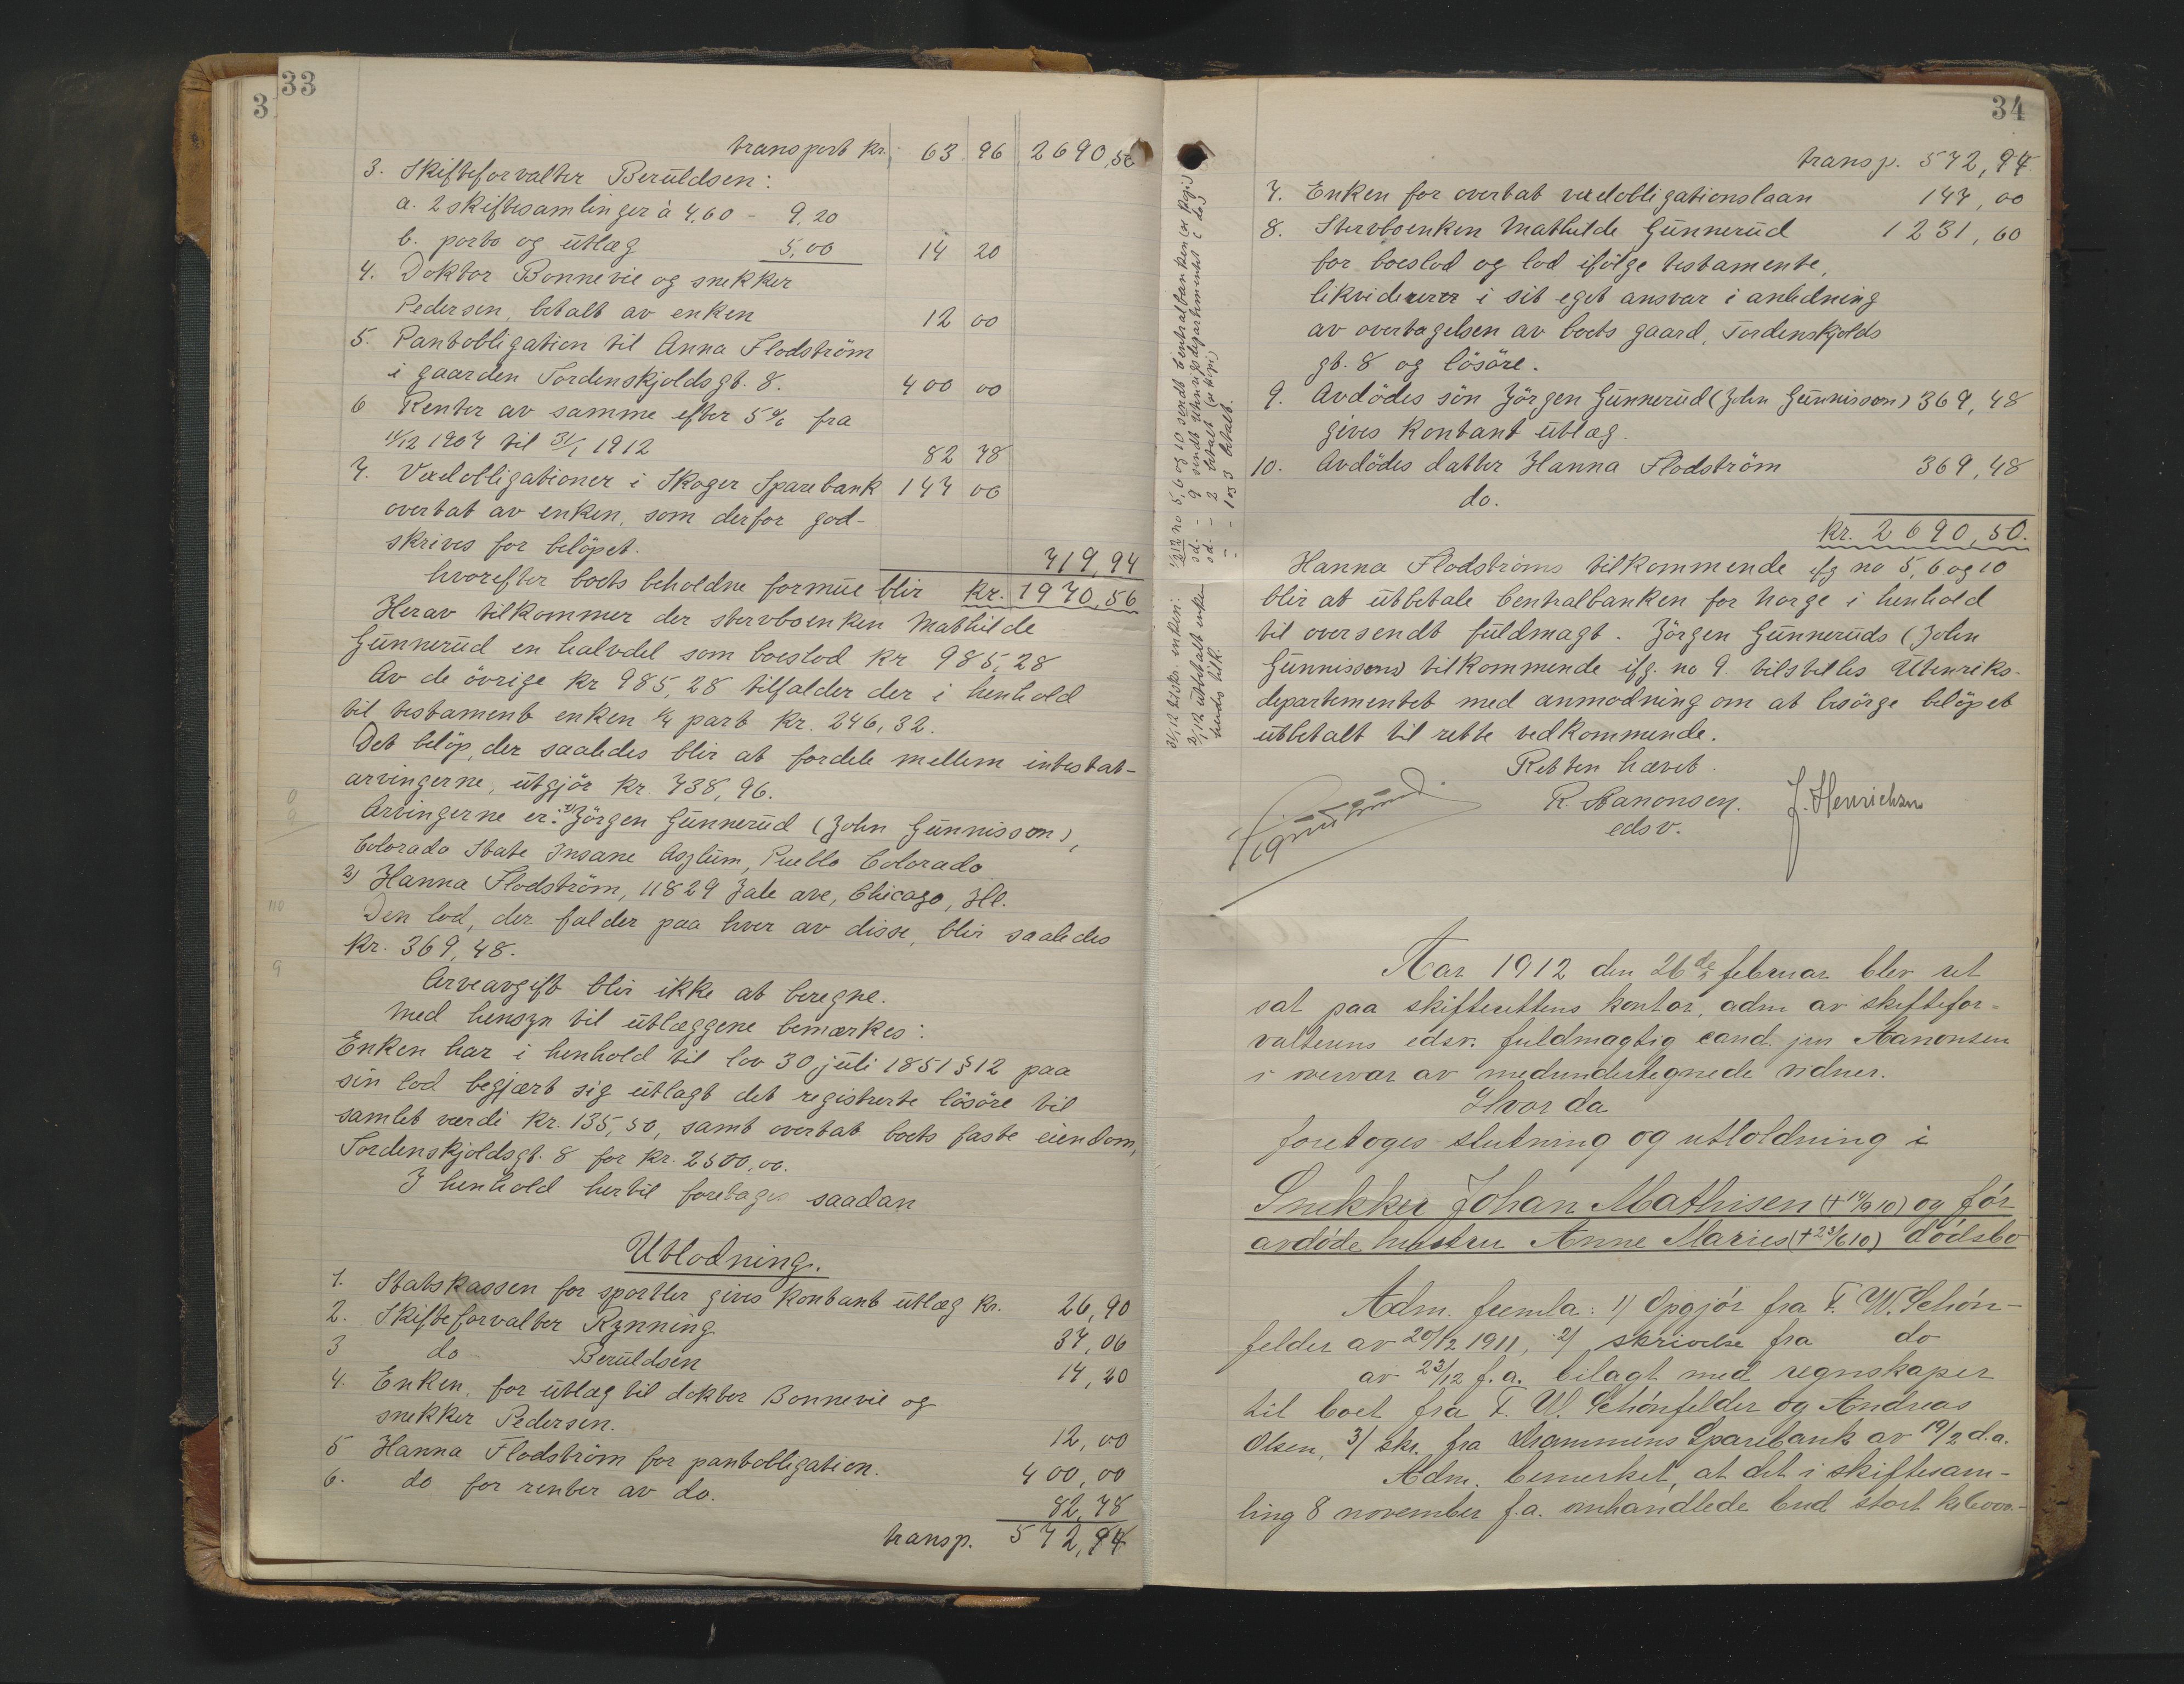 33
3
transport kr. 63 96 2690,50
3. Skifteforvalter Berüldsen:
a. 2 skiftesamlinger à 4,60 - 9,20
b. porto og ütlæg 5,00 14 20
4. Doktor Bonnevie og snekker
Pedersen, betalt av enken 12 00
5. Pantobligation til Anna Flodström
i gaarden Tordenskjoldsgt. 8. 400 00
6 Renter av samme efter 5 % fra
11/12 1907 til 31/1 1912 82 78
7. Vexelobligationer i Skoger Sparebank 147 00
overtat av enken, som derfor god-
skrives for belöpet. 719,94
hvorefter boets beholdne formüe blir kr. 1970,56
Herav tilkommer der stervboenken Mathilde
Günnerüd en halvdel som boeslod kr 985,28
Av de övrige kr 985,28 tilfalder der i henhold
til testament enken 1/4 part kr. 246,32.
Det belöp, der saaledes blir at fordele mellem intestat-
arvingerne, ütgjör kr 738,96.
Arvingerne er: 1) Jörgen Günnerüd (John Günnisson),
Colorado State Insane Asylüm, Pueblo Colorado
2) Hanna Flodström, 11829 Yale ave, Chicago, Ill.
Den lod, der falder paa hver av disse, blir saaledes
kr. 369,48.
Arveavgift blir ikke at beregne.
Med hensyn til ütlæggene bemærkes:
Enken har i henhold til lov 30 jüli 1851 § 12 paa
sin lod begjært sig ütlagt det registrerte lösöre til
samlet værdi kr. 135,50, samt overtat boets faste eiendom,
Tordenskjoldsgt. 8 for kr. 2500,00.
I henhold hertil foretages saadan
Utlodning.
1. Statskassen for sportler gives kontant ütlæg kr. 26,90
2. Skifteforvalter Rynning 37,06
3 do Berüldsen 14,20
4. Enken, for ütlæg til doktor Bonnevie og
snekker Pedersen. 12,00
5 Hanna Flodström for pantobligation. 400,00
6. do for renter av do. 82,78
transp. 572,94
34
transp. 572,94
7. Enken for overtat vexelobligationslaan 147,00
8. Stervboenken Mathilde Günnerüd 1231,60
for boeslod og lod ifölge testamente,
likviderer i sit eget ansvar i anledning
av overtagelsen av boets gaard, Tordenskjolds
gt. 8 og lösöre.
9. Avdödes sön Jörgen Günnerüd (John Günnisson) 369,48
gives kontant ütlæg.
10. Avdödes datter Hanna Flodström 369,48
do.
kr. 2690,50.
Hanna Flodströms tilkommende ifg no 5, 6 og 10
blir at ütbetale Centralbanken for Norge i henhold
til oversendt füldmagt. Jörgen Günnerüds (John
Günnissons) tilkommende ifg. no 9 tilstilles Utenriks-
departementet med anmodning om at besörge belöpet
ütbetalt til rette vedkommende.
Retten hævet.
R. Aanonsen. J. Henrichsen
edsv.
31/1 12 tilskr. enken: 2/2 12 no 5, 6 og 10 sendt Centralbanken (se kopi)
sd. - 9 sendt Utenriksdepartementet i dag
2/1 12 ütbetalt enken sd. - 2 betalt (se kopi)
hendes tilk. - - 1 og 3 betalt.
Aar 1912 den 26de februar blev ret
sat paa skifterettens kontor, adm av skiftefor-
valterens edsv. fuldmægtig cand. jur Aanonsen
i overvær av medundertegnede vidner.
Hvor da
foretoges slutning og utlodning i
Snekker Johan Mathisen (+ 14/9 10) og før
avdøde hustru Anne Maries (+ 23/6 10) dødsbo
Adm. fremla: 1) Opgjør fra F. W. Schøn-
felder av 20/12 1911, 2) skrivelse fra do
av 23/12 f.a. bilagt med regnskaper
til boet fra F. W. Schønfelder og Andreas
Olsen, 3) skr. fra Drammens Sparebank av 19/2 d.a.
Adm. bemerket, at det i skiftesam-
ling 8 november f.a. omhandlede bud stort kr 6000.-